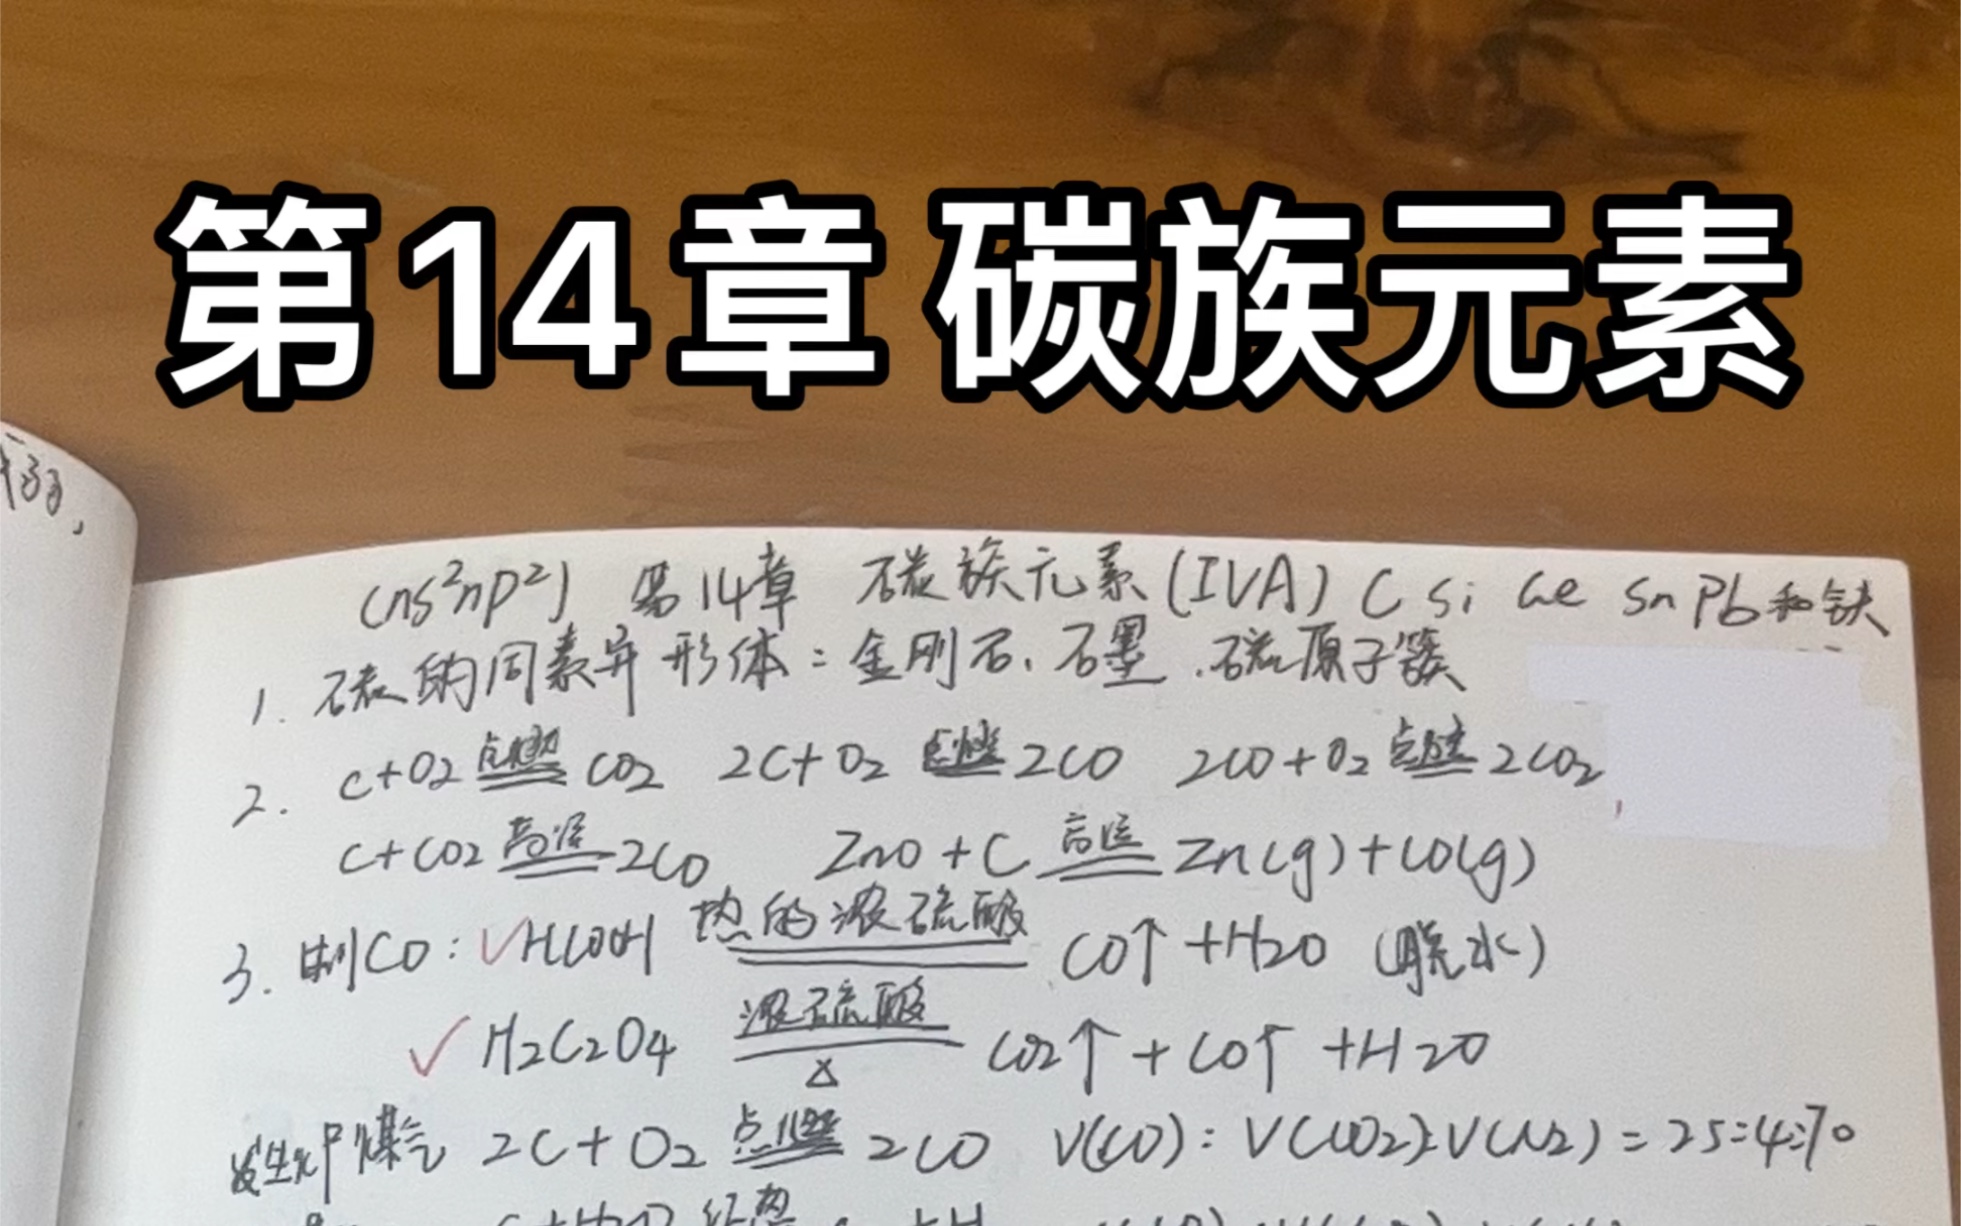 第14章 碳族元素
(ns²np²) 第14章 碳族元素(IVA) C Si Ge Sn Pb和鈇
1. 碳的同素异形体：金刚石、石墨、碳原子簇
2. C+O2 点燃 CO2 2C+O2 点燃 2CO 2CO+O2 点燃 2CO2
C+CO2 高温 2CO ZnO+C 高温 Zn(g)+CO(g)
3. 制CO: ✓HCOOH 热的浓硫酸 CO↑+H2O (脱水)
✓H2C2O4 浓硫酸 △ CO2↑+CO↑+H2O
发生炉煤气 2C+O2 点燃 2CO V(CO):V(CO2):V(N2)=25:4:70